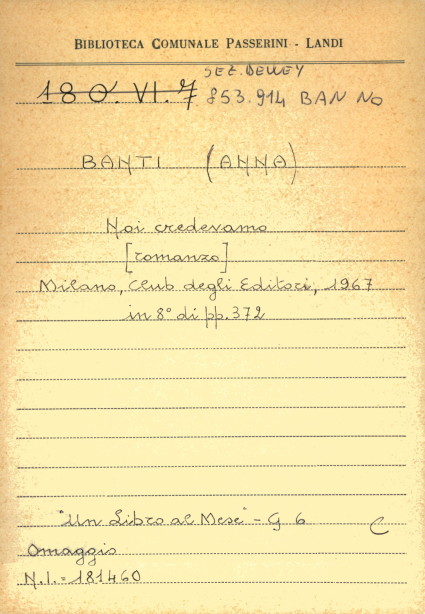 BIBLIOTECA COMUNALE PASSERINI - LANDI
SEZ. DEWEY
18 O'. VI. 7 853.914 BAN NO
BANTI (ANNA)
Noi credevamo
[romanzo]
Milano, Club degli Editori, 1967
in 8° di pp. 372
"Un Libro al Mese" - G 6 C
Omaggio
N.I.= 181460